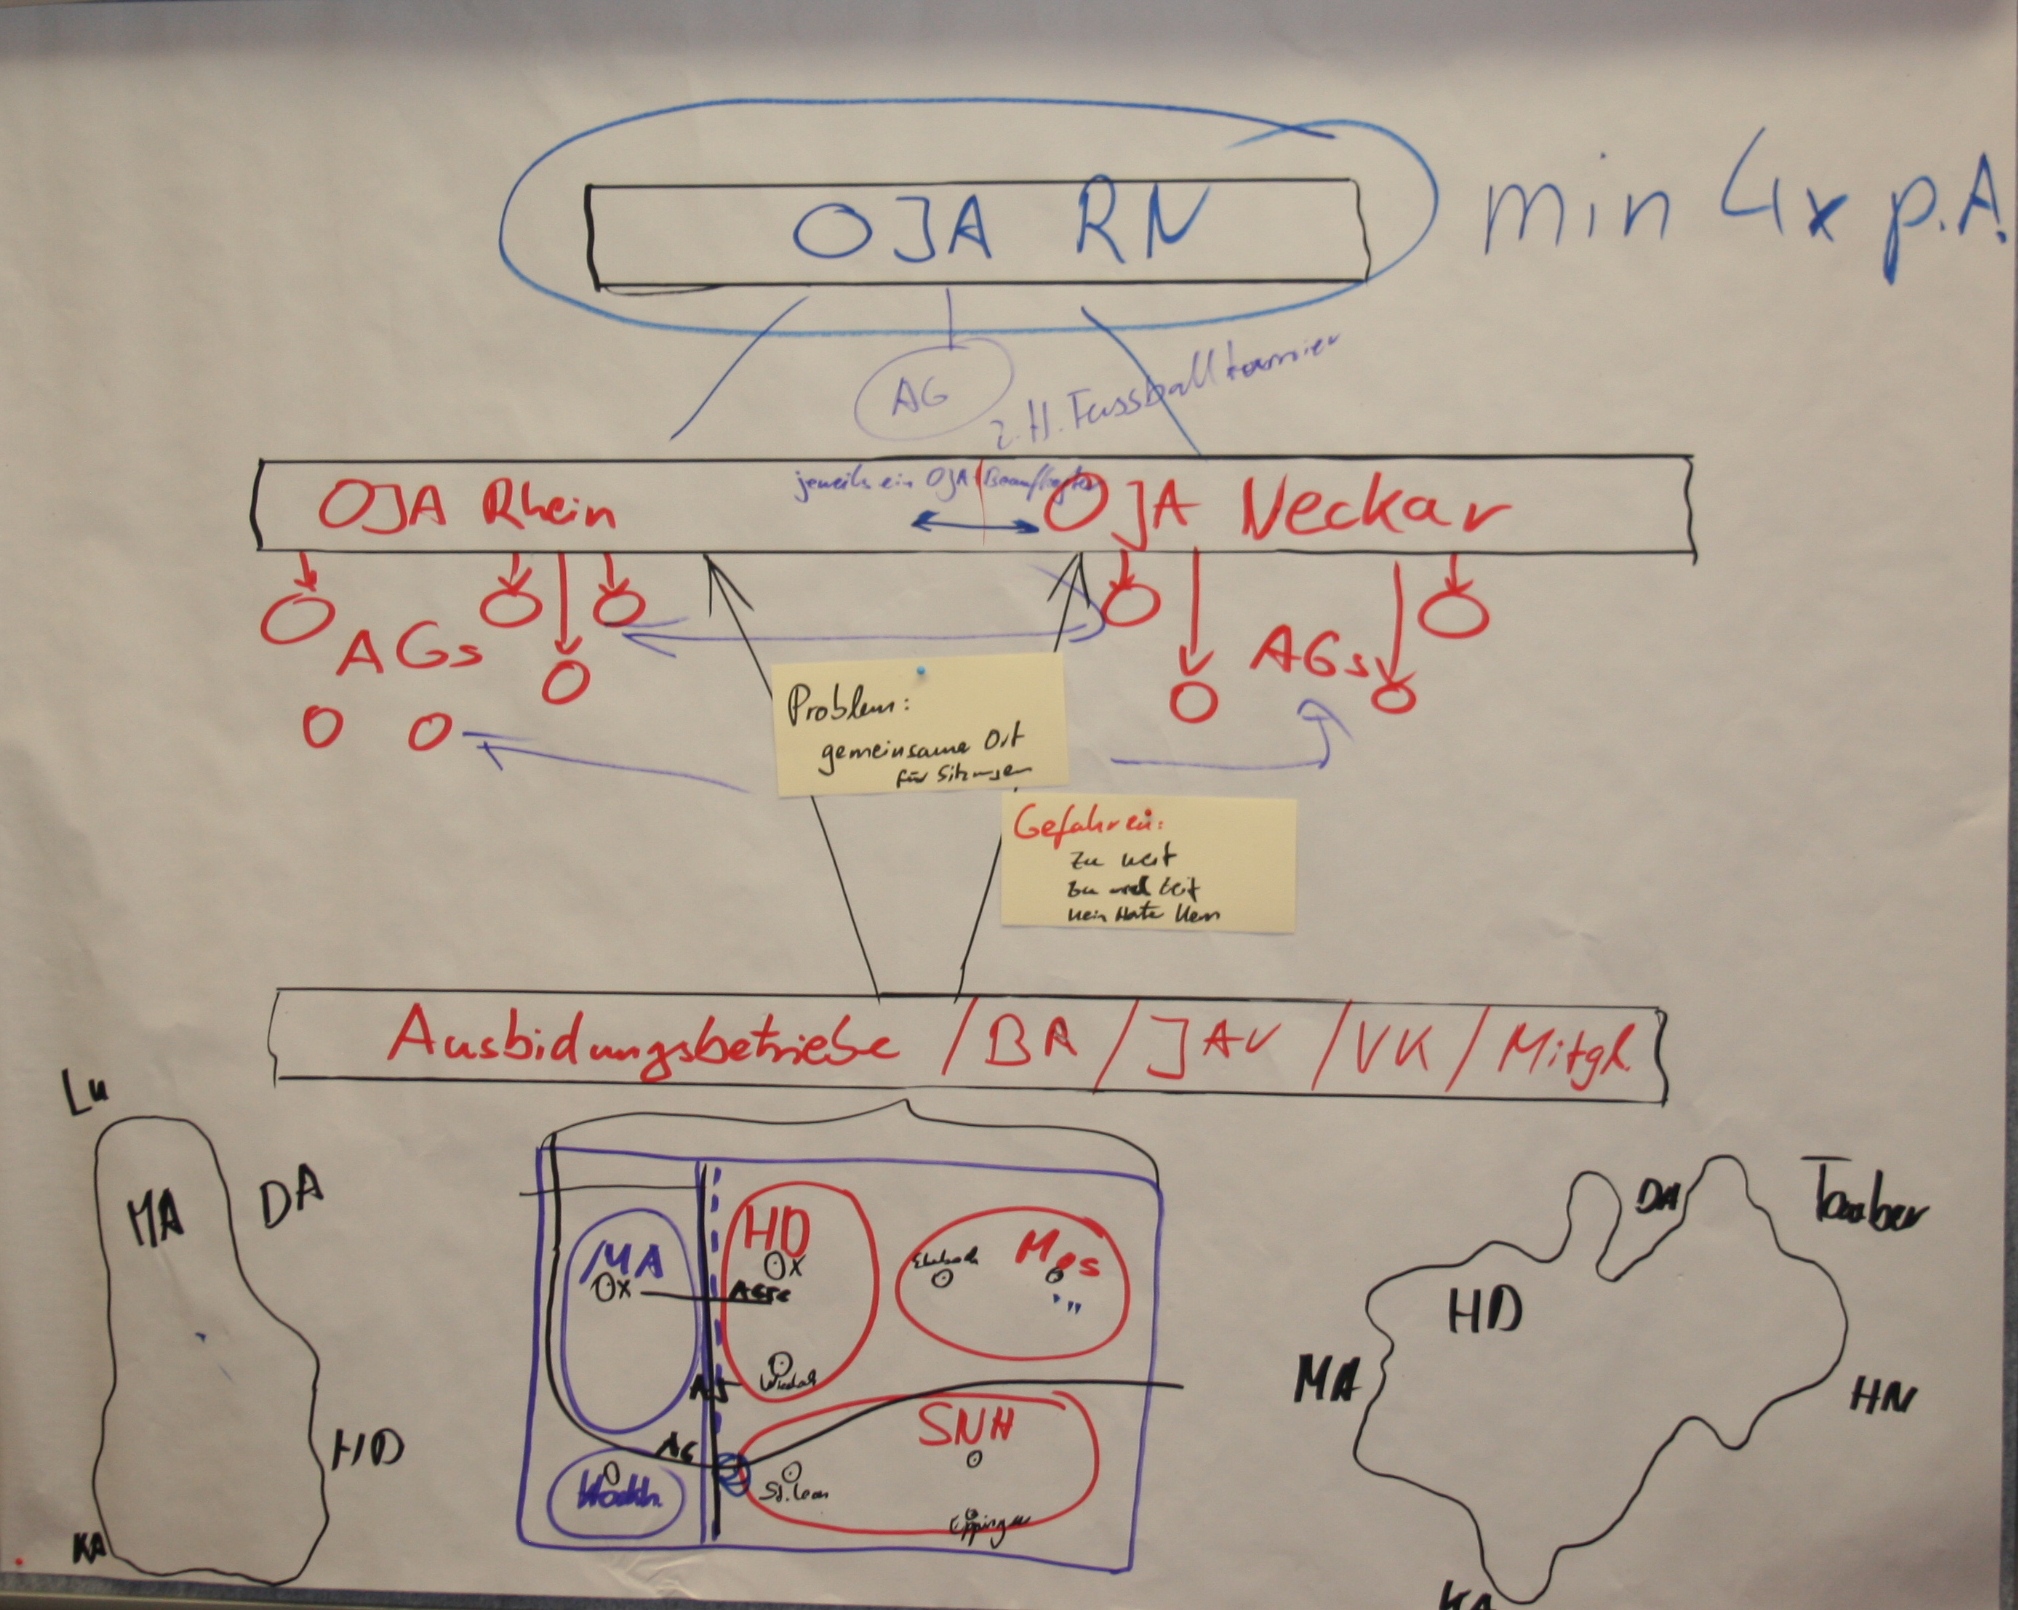 OJA RN
min 4x p.A.
AG
z.B. Fussballturnier
jeweils ein OJA Beauftragter
OJA Rhein
OJA Neckar
AGs
AGs
Problem:
gemeinsame Ort
für Sitzungen
Gefahren:
zu weit
zu viel Zeit
Ausbidungsbetriebe / BA / JAV / VK / Mitgl.
Lu
MA
DA
HD
KA
MA
HD
AGs
Mos
AG
SNH
AG
St. Leon
Eppingen
DA
Tauber
HD
MA
HN
KA